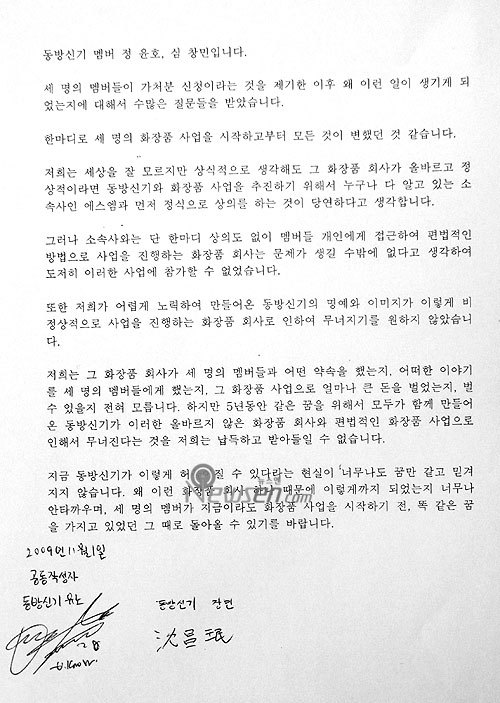 동방신기 멤버 정 윤호, 심 창민입니다.
세 명의 멤버들이 가처분 신청이라는 것을 제기한 이후 왜 이런 일이 생기게 되
었는지에 대해서 수많은 질문들을 받았습니다.
한마디로 세 명의 화장품 사업을 시작하고부터 모든 것이 변했던 것 같습니다.
저희는 세상을 잘 모르지만 상식적으로 생각해도 그 화장품 회사가 올바르고 정
상적이라면 동방신기와 화장품 사업을 추진하기 위해서 누구나 다 알고 있는 소
속사인 에스엠과 먼저 정식으로 상의를 하는 것이 당연하다고 생각합니다.
그러나 소속사와는 단 한마디 상의도 없이 멤버들 개인에게 접근하여 편법적인
방법으로 사업을 진행하는 화장품 회사는 문제가 생길 수밖에 없다고 생각하여
도저히 이러한 사업에 참가할 수 없었습니다.
또한 저희가 어렵게 노력하여 만들어온 동방신기의 명예와 이미지가 이렇게 비
정상적으로 사업을 진행하는 화장품 회사로 인하여 무너지기를 원하지 않았습니
다.
저희는 그 화장품 회사가 세 명의 멤버들과 어떤 약속을 했는지, 어떠한 이야기
를 세 명의 멤버들에게 했는지, 그 화장품 사업으로 얼마나 큰 돈을 벌었는지, 벌
수 있을지 전혀 모릅니다. 하지만 5년동안 같은 꿈을 위해서 모두가 함께 만들어
온 동방신기가 이러한 올바르지 않은 화장품 회사와 편법적인 화장품 사업으로
인해서 무너진다는 것을 저희는 납득하고 받아들일 수 없습니다.
지금 동방신기가 이렇게 허 질 수 있다라는 현실이 너무나도 꿈만 같고 믿겨
지지 않습니다. 왜 이런 화장품 회사 하나 때문에 이렇게까지 되었는지 너무나
안타까우며, 세 명의 멤버가 지금이라도 화장품 사업을 시작하기 전, 똑 같은 꿈
을 가지고 있었던 그 때로 돌아올 수 있기를 바랍니다.
Newsen.com
2009년 11월 1일
공동작성자
동방신기 유노 동방신기 창민
U-Know. 沈昌珉